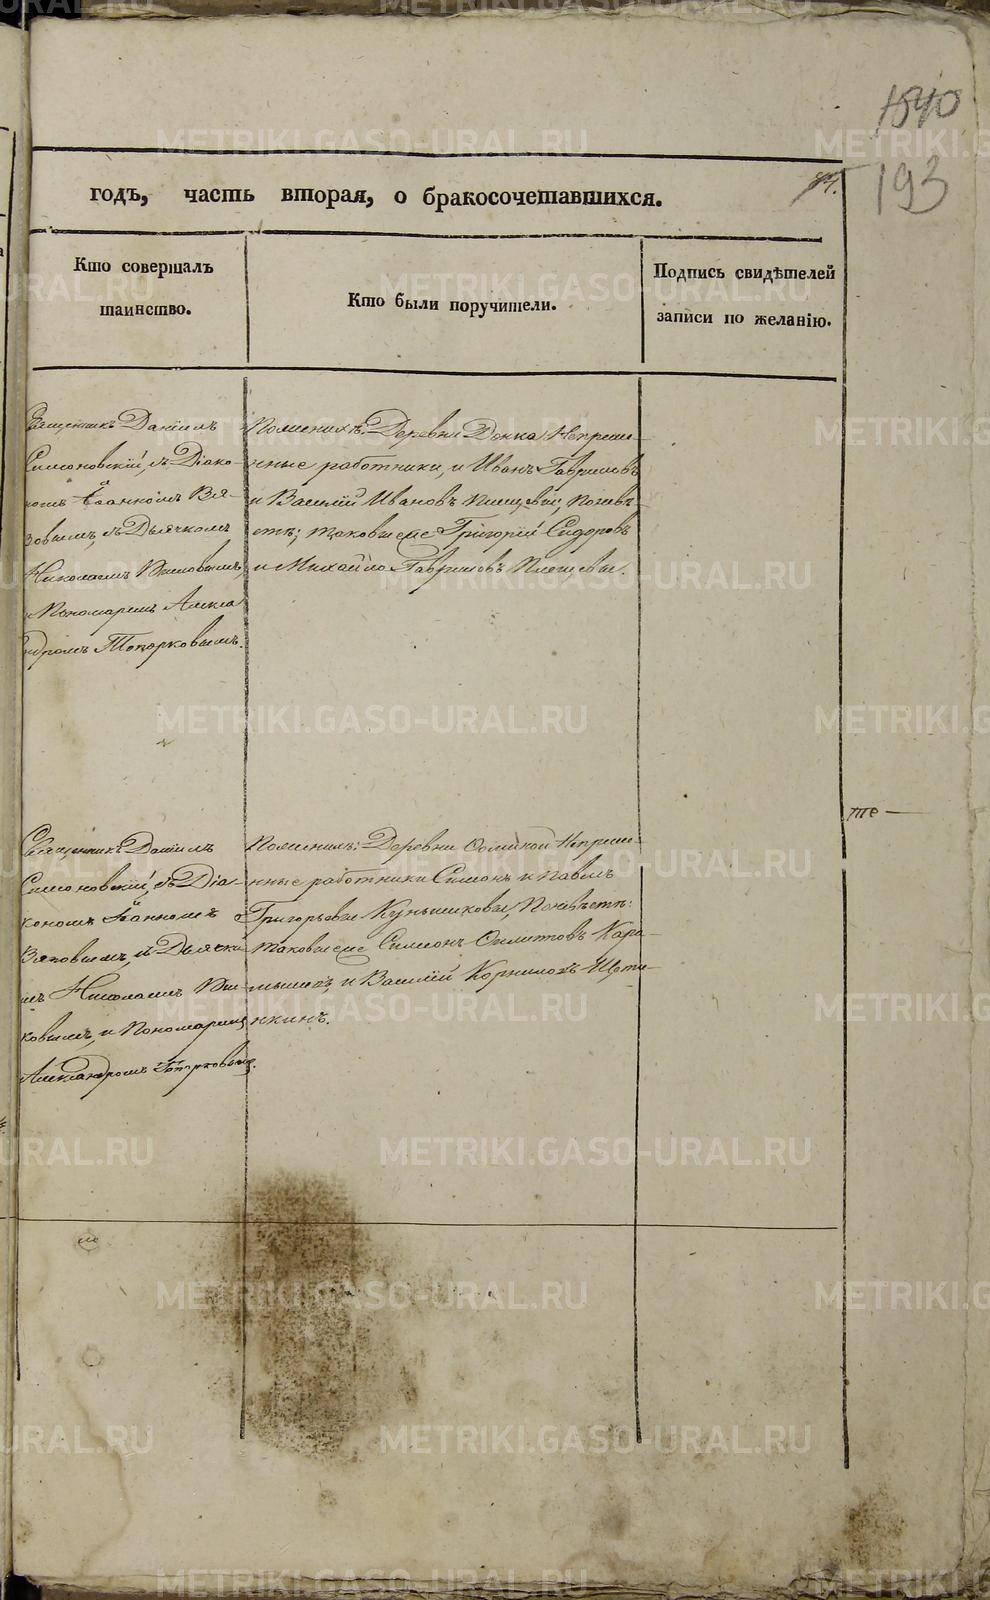 1840
193
годъ, часть вторая, о бракосочетавшихся.
Кто совершалъ
таинство.
Кто были поручители.
Подпись свидѣтелей
записи по желанію.
Священникъ Даніилъ
Симановскій, съ Діако-
номъ Іоанномъ Вя-
зовымъ, съ Дьячкомъ
Николаемъ
и Пономаремъ Алекса
ндромъ Топорковымъ.
По женихѣ: Деревни Непреме-
нные работники, Иванъ Гавриловъ
и Василій Ивановъ Плещевы; по невѣ-
стѣ; таковые же Григорій Сидоровъ
и Михайло Гавриловъ Плещевы.
те
Священникъ Даніилъ
Симановскій, съ Діа-
кономъ Іоанномъ
Вязовымъ, съ Дьячко
мъ Николаемъ
ковымъ, и Пономаремъ
Александромъ Топорковымъ.
По женихѣ: Деревни Непреме-
нные работники Симеонъ и Павелъ
Григорьевы Кунщиковы, По невѣстѣ:
таковые же Симеонъ Кара-
мышевъ, и Василій Корниловъ Щети-
нкинъ.
METRIKI.GASO-URAL.RU